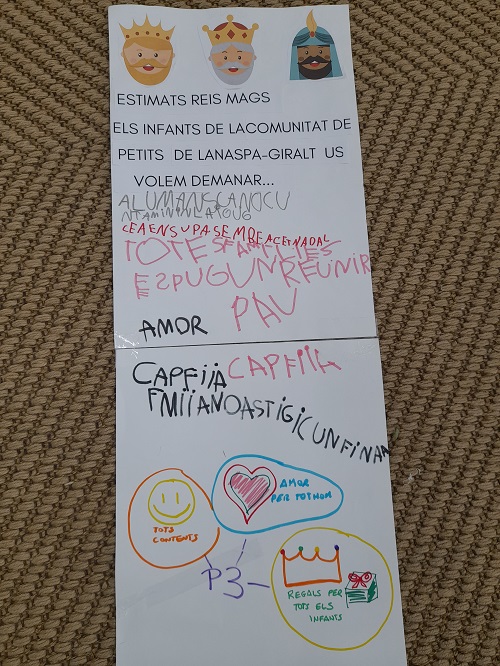 ESTIMATS REIS MAGS
ELS INFANTS DE LACOMUNITAT DE
PETITS DE LANASPA-GIRALT US
VOLEM DEMANAR...
TOTESFAMILIES
ESPUGUNREUNIR
PAU
AMOR
CAPFIIA CAPFIIA
FMIIANOASTIGICUNFINAA
TOTS
CONTENTS
AMOR
PER TOTHOM
P3
REGALS PER
TOTS ELS
INFANTS